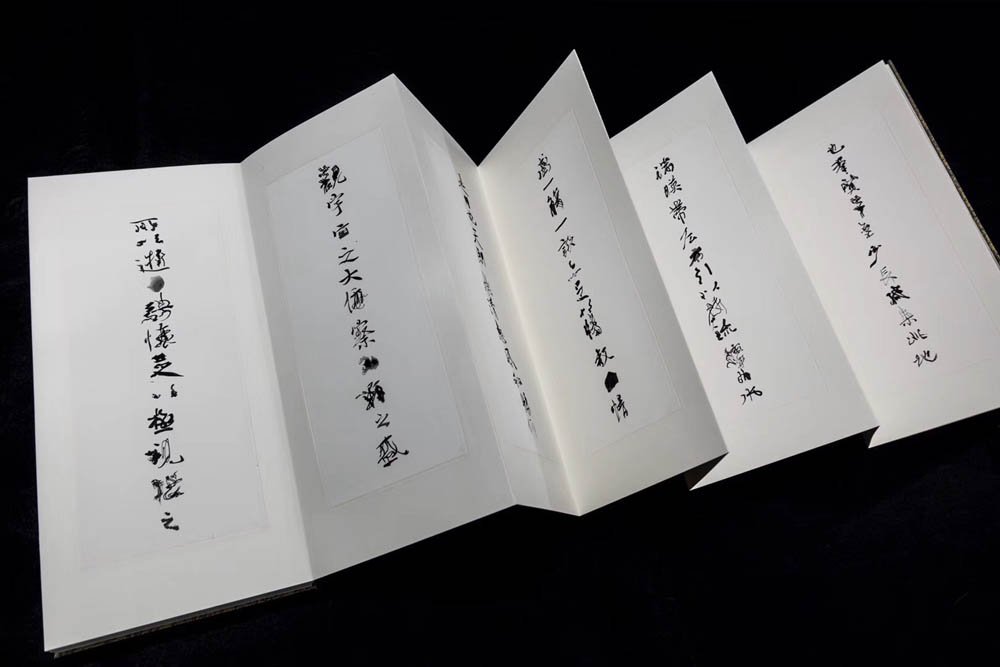 也羣賢畢至少長咸集此地
湍暎帶左右引以為流觴曲水
一觴一詠亦足以暢敘情
觀宇宙之大俯察類之盛
所以遊騁懷足以極視聽之